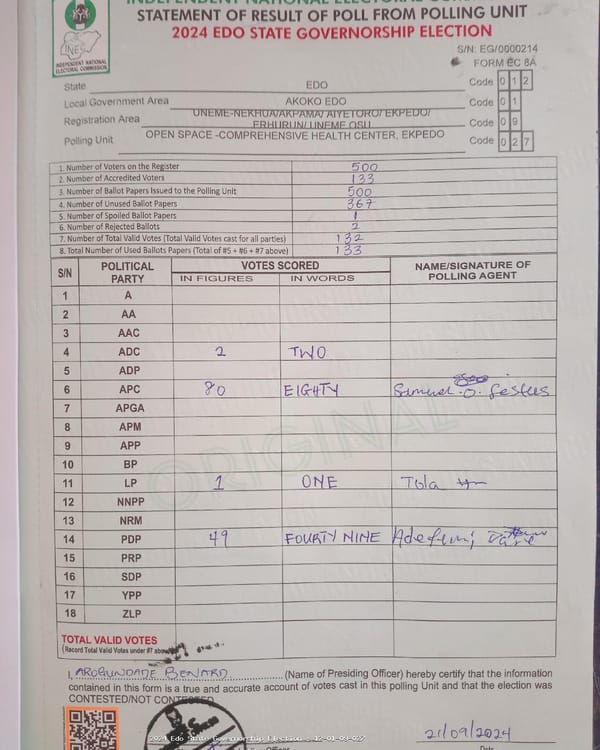 INDEPENDENT NATIONAL ELECTORAL
STATEMENT OF RESULT OF POLL FROM POLLING UNIT
2024 EDO STATE GOVERNORSHIP ELECTION
INEC
INDEPENDENT NATIONAL
ELECTORAL COMMISSION
S/N: EG/0000214
FORM EC 8A
State EDO Code 0 1 2
Local Government Area AKOKO EDO Code 0 1
Registration Area UNEME-NEKHUA/AKPAMA/ AIYETORO/ EKPEDO/
ERHURUN/ UNEME OSU Code 0 9
Polling Unit OPEN SPACE -COMPREHENSIVE HEALTH CENTER, EKPEDO Code 0 2 7
1. Number of Voters on the Register 500
2. Number of Accredited Voters 133
3. Number of Ballot Papers Issued to the Polling Unit 500
4. Number of Unused Ballot Papers 367
5. Number of Spoiled Ballot Papers 1
6. Number of Rejected Ballots 2
7. Number of Total Valid Votes (Total Valid Votes cast for all parties) 132
8. Total Number of Used Ballots Papers (Total of #5 + #6 + #7 above) 133
S/N POLITICAL PARTY VOTES SCORED NAME/SIGNATURE OF POLLING AGENT
IN FIGURES IN WORDS
1 A
2 AA
3 AAC
4 ADC 2 TWO
5 ADP
6 APC 80 EIGHTY Samuel .O. Festus
7 APGA
8 APM
9 APP
10 BP
11 LP 1 ONE Tola
12 NNPP
13 NRM
14 PDP 49 FOURTY NINE Adefemi
15 PRP
16 SDP
17 YPP
18 ZLP
ORIGINAL
TOTAL VALID VOTES
(Record Total Valid Votes under #7 above)
I, AROGUNDADE BENARD (Name of Presiding Officer) hereby certify that the information
contained in this form is a true and accurate account of votes cast in this polling Unit and that the election was
CONTESTED/NOT CONTESTED
21/09/2024
2024 Edo State Governorship Election - 12-01-09-027
Date